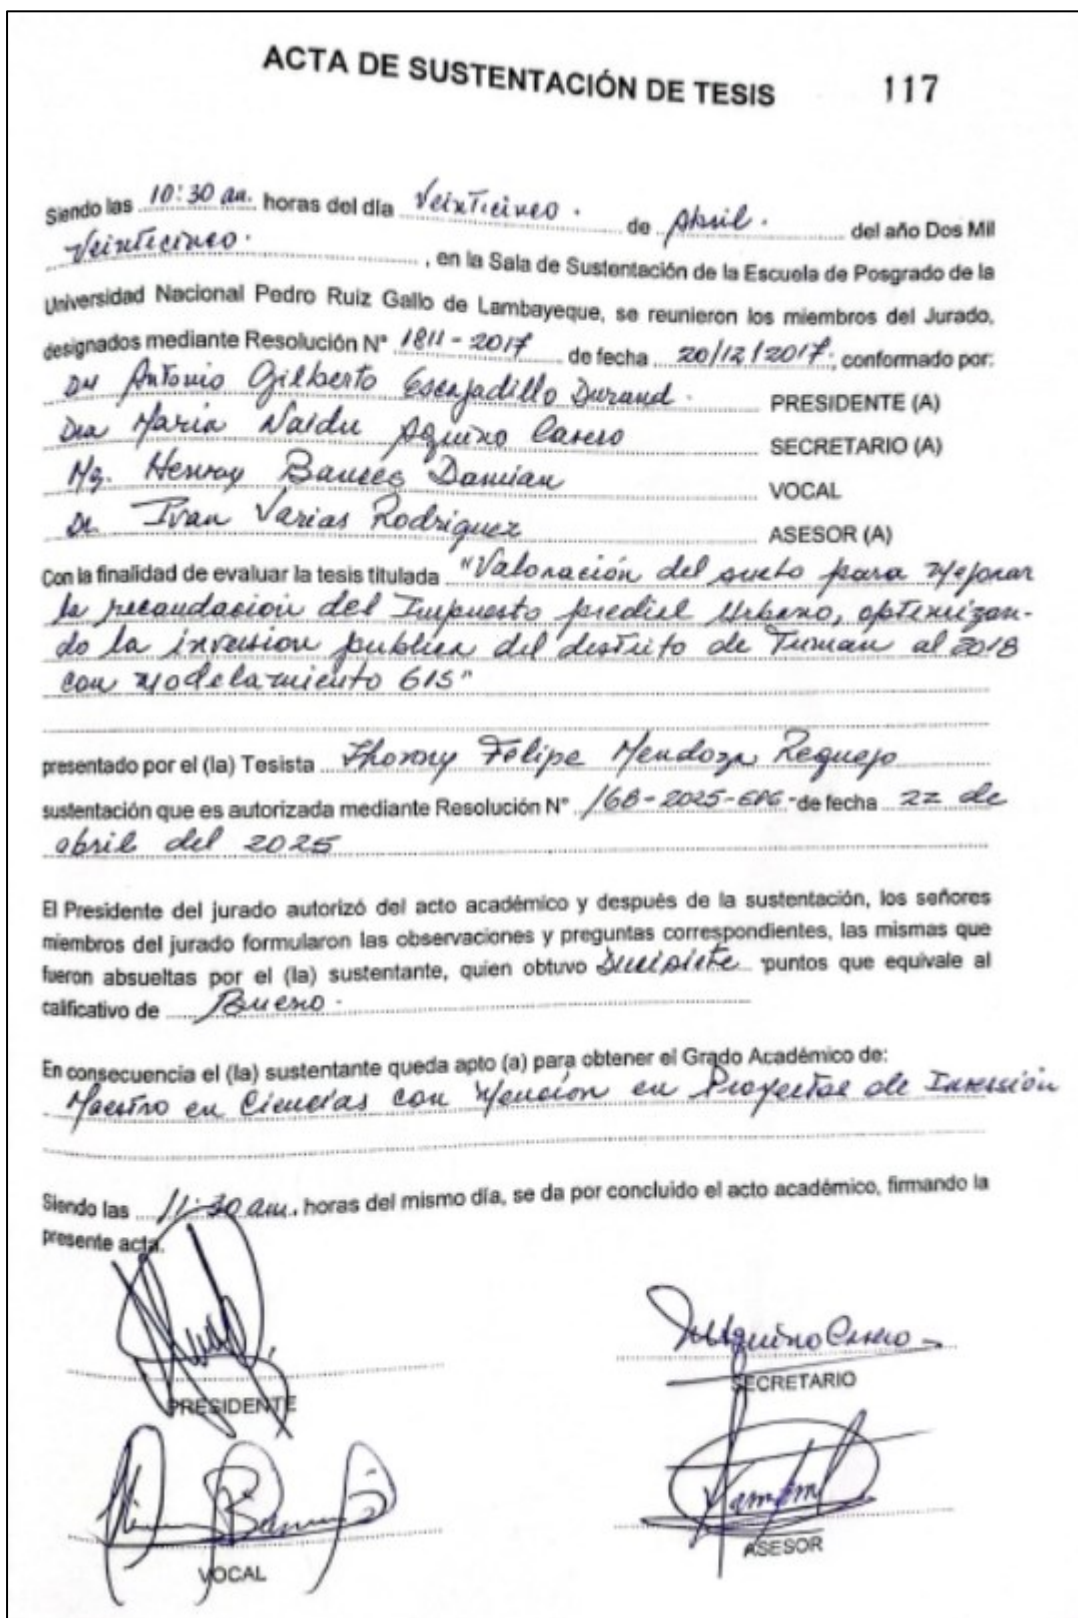 ACTA DE SUSTENTACIÓN DE TESIS 117
Siendo las 10:30 am. horas del día Veinticinco. de Abril. del año Dos Mil
Veinticinco. , en la Sala de Sustentación de la Escuela de Posgrado de la
Universidad Nacional Pedro Ruiz Gallo de Lambayeque, se reunieron los miembros del Jurado,
designados mediante Resolución N° 1811-2017 de fecha 20/12/2017, conformado por:
Dr Antonio Gilberto Escajadillo Durand. PRESIDENTE (A)
Dra María Naidu Aquino SECRETARIO (A)
Mg. Henry Damian VOCAL
Dr. Ivan Varias Rodriguez ASESOR (A)
Con la finalidad de evaluar la tesis titulada "Valoración del suelo para mejorar
la recaudación del Impuesto predial Urbano, optimizan-
do la inversion publica del distrito de Tuman al 2018
con modelamiento GIS"
presentado por el (la) Tesista Felipe Mendoza Requejo
sustentación que es autorizada mediante Resolución N° 168-2025-EPG- de fecha 22 de
abril del 2025
El Presidente del jurado autorizó del acto académico y después de la sustentación, los señores
miembros del jurado formularon las observaciones y preguntas correspondientes, las mismas que
fueron absueltas por el (la) sustentante, quien obtuvo Diecisiete puntos que equivale al
calificativo de Bueno.
En consecuencia el (la) sustentante queda apto (a) para obtener el Grado Académico de:
Maestro en Ciencias con Mención en Proyectos de Inversión
Siendo las 11:30 am. horas del mismo día, se da por concluido el acto académico, firmando la
presente acta.
PRESIDENTE
SECRETARIO
VOCAL
ASESOR